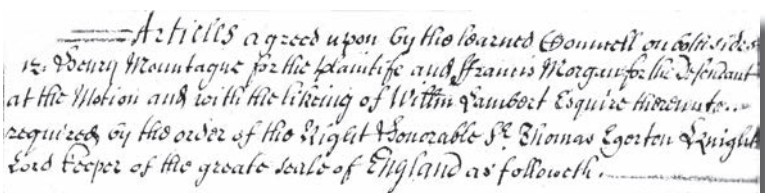 Articles agreed upon by the learned Counsell on both sides
viz. Henry Mountague for the plaintife and ffrancis Morgan for the Defendant
at the Motion and with the likeing of Willm Lambert Esquire thereunto
required by the order of the Right Honorable Sr. Thomas Egerton Knight
Lord Keeper of the greate seale of England as followeth.